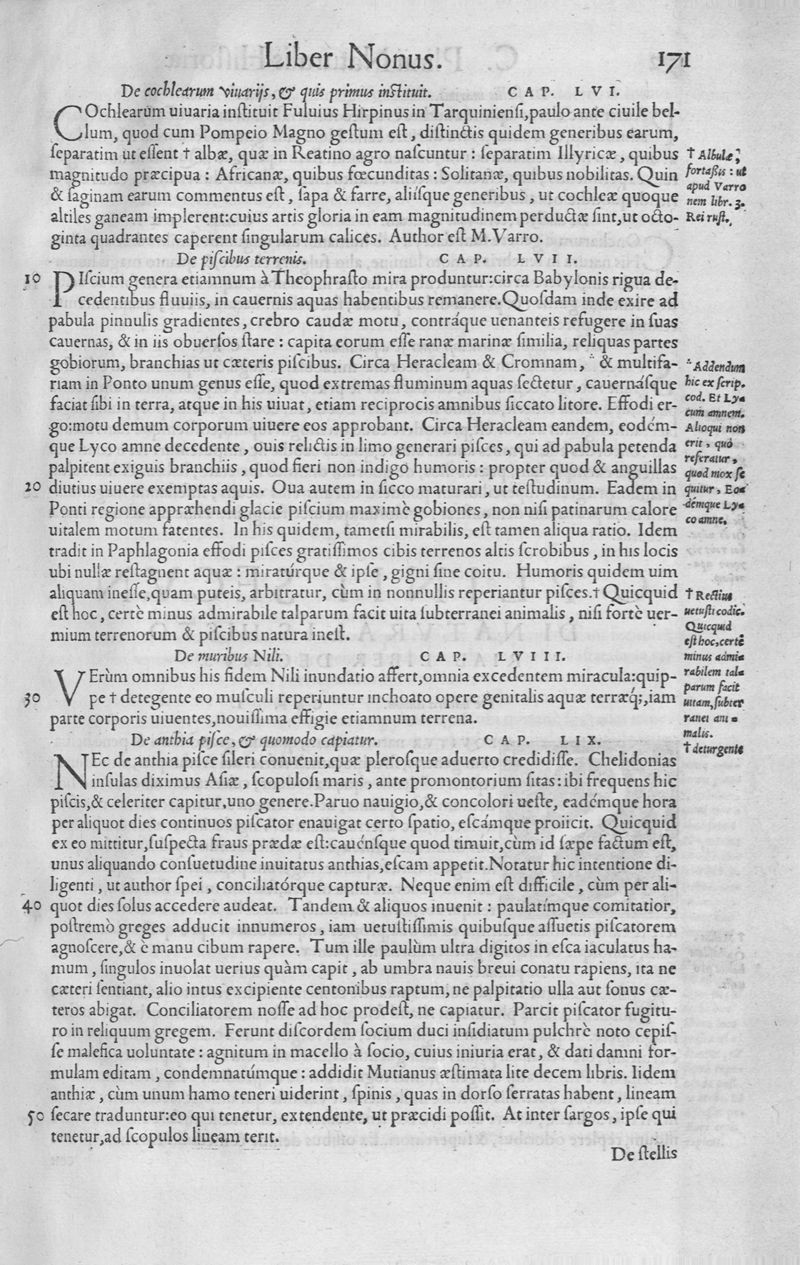 Liber Nonus. 171
De cochlearum viuarijs, & quis primus instituit. CAP. LVI.
COchlearum uiuaria inſtituit Fuluius Hirpinus in Tarquinienſi,paulo ante ciuile bel-
lum, quod cum Pompeio Magno geſtum eſt, diſtinctis quidem generibus earum,
ſeparatim ut eſſent † albæ, quæ in Reatino agro naſcuntur : ſeparatim Illyricæ, quibus
magnitudo præcipua : Africanæ, quibus fœcunditas : Solitanæ, quibus nobilitas. Quin
& ſaginam earum commentus eſt, ſapa & farre, aliiſque generibus, ut cochleæ quoque
altiles ganeam implerent:cuius artis gloria in eam magnitudinem perductæ ſint,ut octo-
ginta quadrantes caperent ſingularum calices. Author eſt M.Varro.
† Albulæ,
fortaßis : ut
apud Varro
nem libr. 3.
Rei ruſt.
De piſcibus terrenis. CAP. LVII.
10 PIſcium genera etiamnum à Theophraſto mira produntur:circa Babylonis rigua de-
cedentibus fluuiis, in cauernis aquas habentibus remanere.Quoſdam inde exire ad
pabula pinnulis gradientes, crebro caudæ motu, contráque uenanteis refugere in ſuas
cauernas, & in iis obuerſos ſtare : capita eorum eſſe ranæ marinæ ſimilia, reliquas partes
gobiorum, branchias ut cæteris piſcibus. Circa Heracleam & Cromnam, & multifa-
riam in Ponto unum genus eſſe, quod extremas fluminum aquas ſectetur, cauernáſque
faciat ſibi in terra, atque in his uiuat, etiam reciprocis amnibus ſiccato litore. Effodi er-
go:motu demum corporum uiuere eos approbant. Circa Heracleam eandem, eodém-
que Lyco amne decedente, ouis relictis in limo generari piſces, qui ad pabula petenda
palpitent exiguis branchiis, quod fieri non indigo humoris : propter quod & anguillas
20 diutius uiuere exemptas aquis. Oua autem in ſicco maturari, ut teſtudinum. Eadem in
Ponti regione appræhendi glacie piſcium maximè gobiones, non niſi patinarum calore
uitalem motum fatentes. In his quidem, tametſi mirabilis, eſt tamen aliqua ratio. Idem
tradit in Paphlagonia effodi piſces gratiſſimos cibis terrenos altis ſcrobibus, in his locis
ubi nullæ reſtagnent aquæ : miratúrque & ipſe, gigni ſine coitu. Humoris quidem uim
aliquam ineſſe,quam puteis, arbitratur, cùm in nonnullis reperiantur piſces.† Quicquid
eſt hoc, certè minus admirabile talparum facit uita ſubterranei animalis, niſi fortè uer-
mium terrenorum & piſcibus natura ineſt.
Addendum
hic ex ſcrip.
cod. Et Ly
cum amnem.
Alioqui non
erit, quò
referatur,
quod mox ſe
quitur, Eo
demque Ly
co amne.
† Rectius
uetuſti codic.
Quicquid
eſt hoc,certè
minus admi
rabilem tal
parum facit
uitam,ſubter
ranei ani
malis.
De muribus Nili. CAP. LVIII.
VErùm omnibus his fidem Nili inundatio affert,omnia excedentem miracula:quip-
30 pe † detegente eo muſculi reperiuntur inchoato opere genitalis aquæ terræq́;,iam
parte corporis uiuentes,nouiſſima effigie etiamnum terrena.
† deturgente
De anthia piſce, & quomodo capiatur. CAP. LIX.
NEc de anthia piſce ſileri conuenit,quæ pleroſque aduerto credidiſſe. Chelidonias
inſulas diximus Aſiæ, ſcopuloſi maris, ante promontorium ſitas:ibi frequens hic
piſcis,& celeriter capitur,uno genere.Paruo nauigio,& concolori ueſte, eadémque hora
per aliquot dies continuos piſcator enauigat certo ſpatio, eſcámque proiicit. Quicquid
ex eo mittitur,ſuſpecta fraus prædæ eſt:cauénſque quod timuit,cùm id ſæpe factum eſt,
unus aliquando conſuetudine inuitatus anthias,eſcam appetit.Notatur hic intentione di-
ligenti, ut author ſpei, conciliatórque capturæ. Neque enim eſt difficile, cùm per ali-
40 quot dies ſolus accedere audeat. Tandem & aliquos inuenit : paulatímque comitatior,
poſtremò greges adducit innumeros, iam uetuſtiſſimis quibuſque aſſuetis piſcatorem
agnoſcere,& è manu cibum rapere. Tum ille paulùm ultra digitos in eſca iaculatus ha-
mum, ſingulos inuolat uerius quàm capit, ab umbra nauis breui conatu rapiens, ita ne
cæteri ſentiant, alio intus excipiente centonibus raptum, ne palpitatio ulla aut ſonus cæ-
teros abigat. Conciliatorem noſſe ad hoc prodeſt, ne capiatur. Parcit piſcator fugitu-
ro in reliquum gregem. Ferunt diſcordem ſocium duci inſidiatum pulchrè noto cepiſ-
ſe malefica uoluntate : agnitum in macello à ſocio, cuius iniuria erat, & dati damni for-
mulam editam, condemnatúmque : addidit Mutianus æſtimata lite decem libris. Iidem
anthiæ, cùm unum hamo teneri uiderint, ſpinis, quas in dorſo ſerratas habent, lineam
50 ſecare traduntur:eo qui tenetur, extendente, ut præcidi poſſit. At inter ſargos, ipſe qui
tenetur,ad ſcopulos lineam terit.
De ſtellis